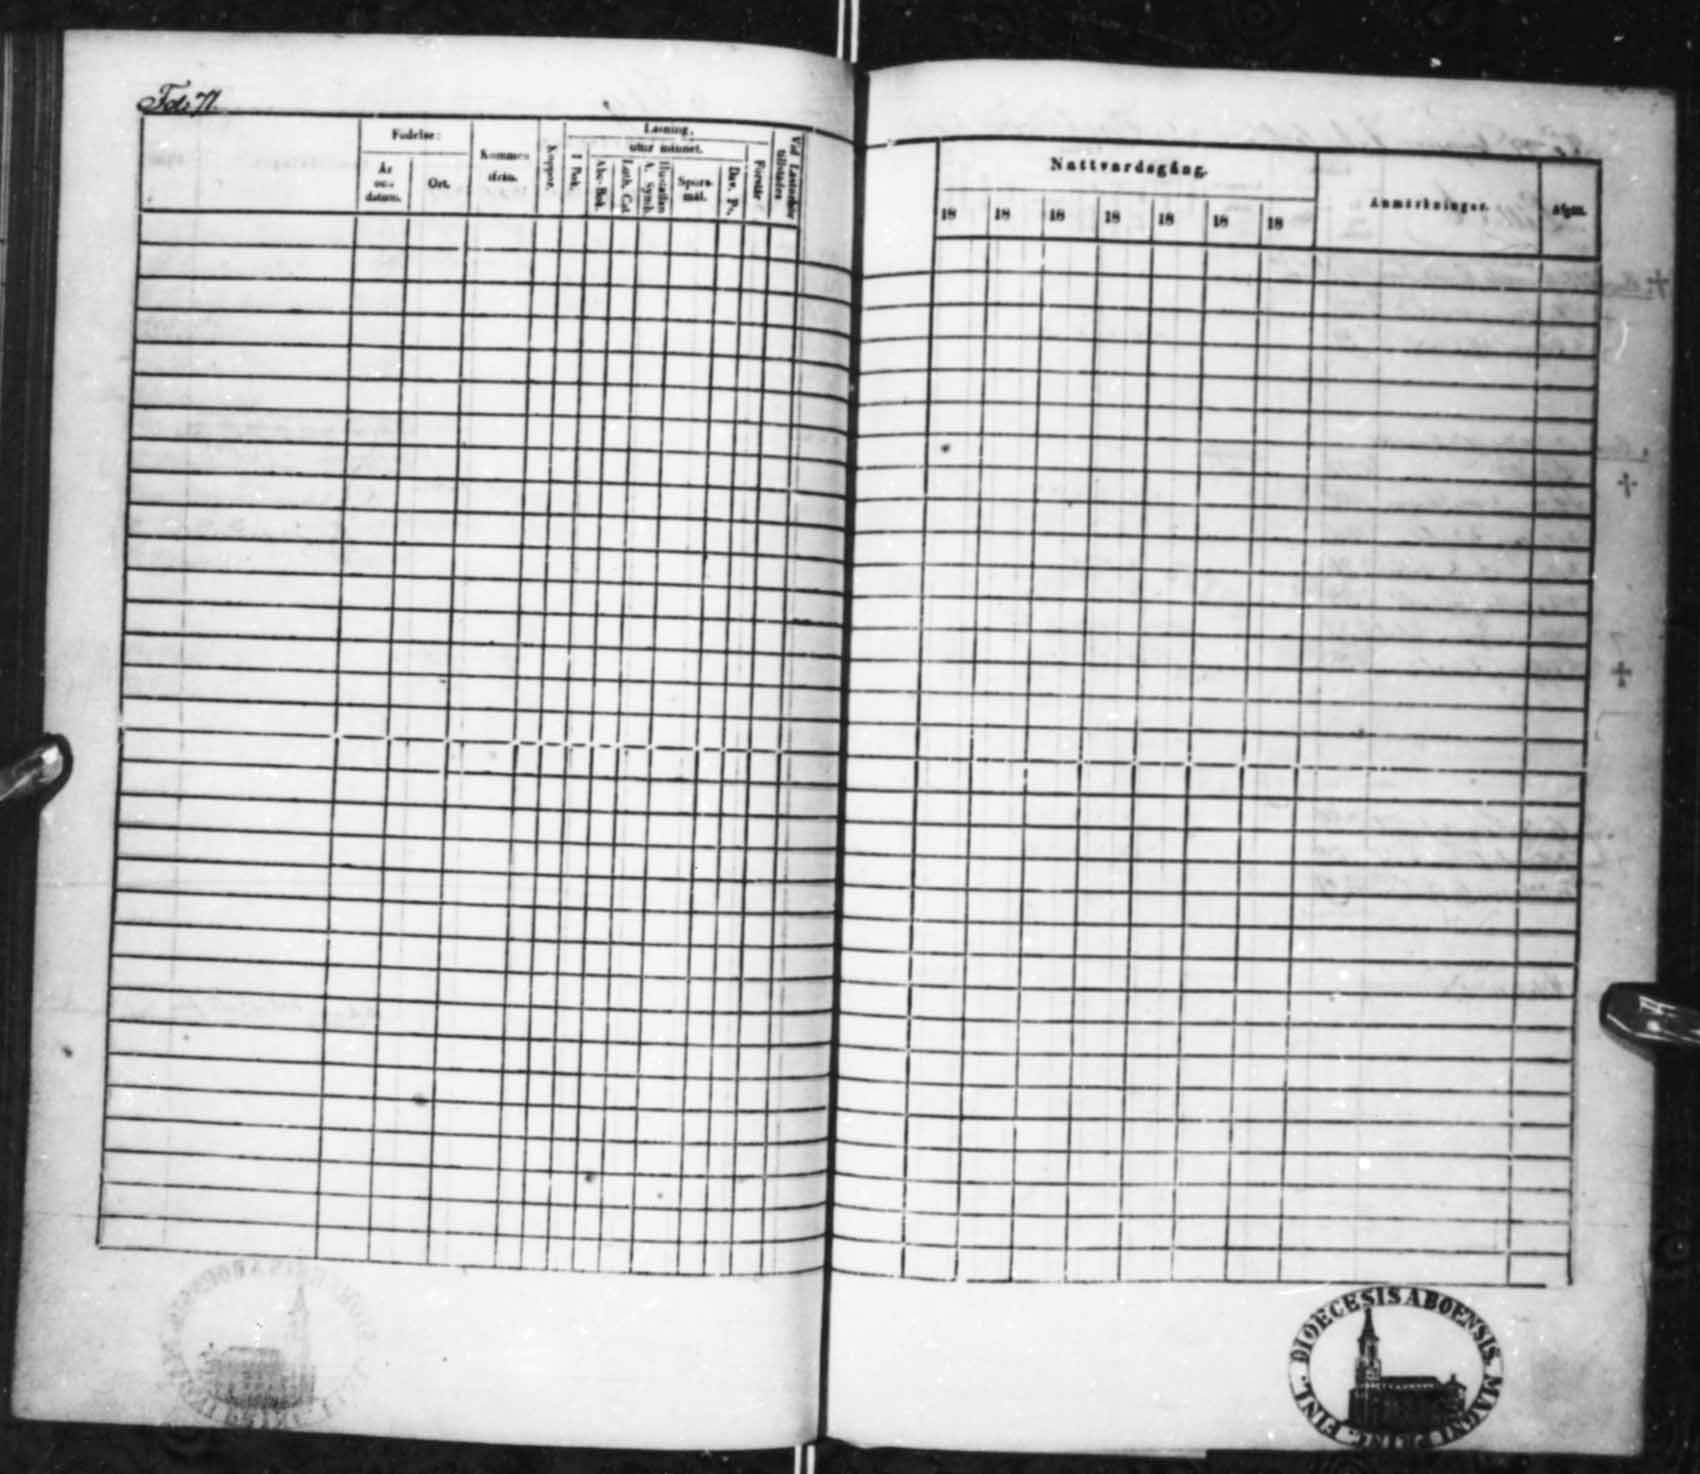 Fol: 71.
Födelse:
År och datum.
Ort.
Kommen ifrån.
Koppor.
Läsning,
utur minnet.
I Bok.
Abc-Bok.
Luth. Cat.
A. Symb.
Hustaflan
Spörsmål.
Dav. Ps.
Förstår
Vid Läseförhör tillstädes
Nattvardsgång.
18 18 18 18 18 18 18
Anmärkningar.
Afgått.
DIOECESIS ABOENSIS. MAGNI PRINC. FINL.